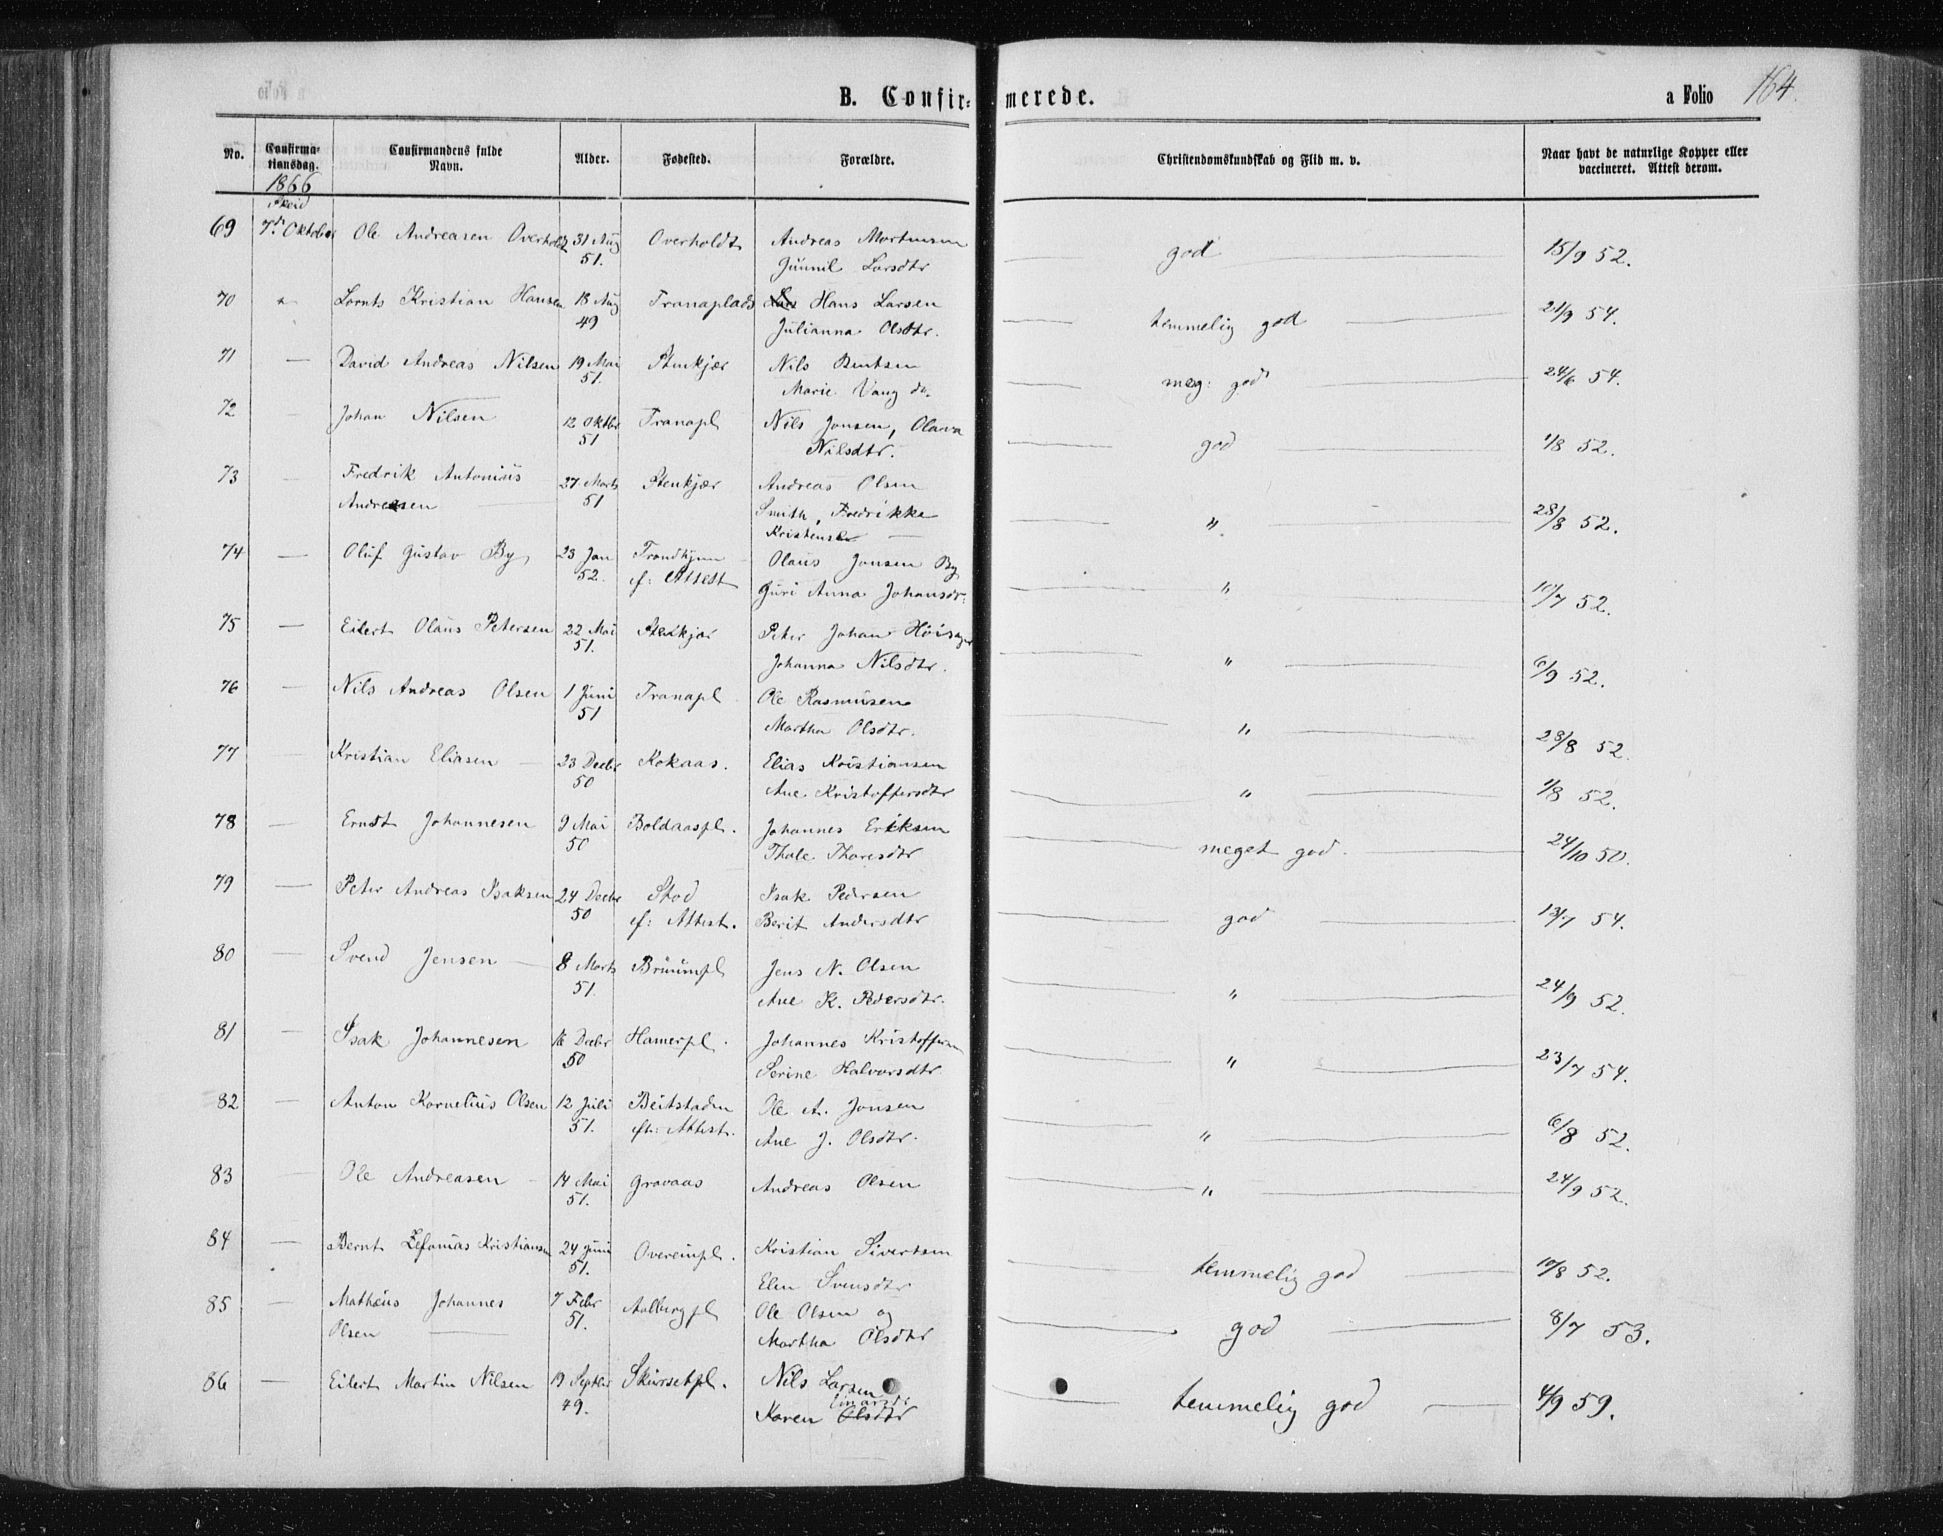 B. Confir- merede. a Folio 164.
No. Confirma-tionsdag. Confirmandens fulde Navn. Alder. Fødested. Forældre. Christendomskundskab og Flid m. v. Naar havt de naturlige Kopper eller vaccineret. Attest derom.
1866
69 7de Oktober Ole Andreasen Overholdt 31 Aug Overholdt Andreas Mortensen god 15/9 52.
51. Gunnil Larsdtr
70 Lornts Kristian Hansen 18 Aug Tranaplads Hans Larsen temmelig god 21/9 54.
49 Julianna Olsdtr.
71 — David Andreas Nilsen 19 Mai Stenkjær Nils Bentsen meg: god 24/6 54.
51. Marie Vang do.
72 — Johan Nilsen 12 Oktbr Tranapl Nils Jonsen, Olava god 1/8 52.
51 Nilsdtr.
73 — Fredrik Antonius 27 Marts Stenkjær Andreas Olsen " 28/8 52.
Andreasen 51 Smith, Fredrikke
Kristensdr
74 — Oluf Gustav By 23 Jan Trondhjem Olaus Jonsen By " 10/7 52.
52. ef: Attest Guri Anna Johansdr:
75 — Eilert Olaus Petersen 22 Mai Stenkjær Peter Johan " 6/9 52.
51. Johanna Nilsdtr.
76 — Nils Andreas Olsen 1 Juni Tranapl Ole Rasmusen " 28/8 52.
51 Martha Olsdtr.
77 — Kristian Eliasen 23 Decbr Kokaas. Elias Kristiansen " 1/8 52.
50 Ane Kristoffersdtr
78 — Ernst Johannesen 9 Mai Boldaaspl. Johannes Eriksen meget god. 24/10 50.
50 Thale Thoresdtr
79 — Peter Andreas Isaksen 24 Decbr Stod Isak Pedersen god 13/7 54.
50 ef: Attest. Berit Andersdtr
80 — Svend Jensen 8 Marts Bruumpl Jens N. Olsen " 24/9 52.
51. Ane K. Pedersdtr.
81 — Isak Johannesen 16 Decbr Hamerpl. Johannes Kristoffersen " 23/7 54.
50 Serine Halvorsdtr.
82 — Anton Kornelius Olsen 12 Juli Beitstaden Ole A. Jonsen " 6/8 52.
51. eft: Attest. Ane J. Olsdtr.
83 — Ole Andreasen 14 Mai Gravaas Andreas Olsen " 24/9 52.
51.
84 — Bernt Zefanias Kristiansen 24 Juni Overeinpl. Kristian Sivertsen temmelig god 10/8 52.
51. Elen Svensdtr
85 — Mathæus Johannes 7 Febr Aalbergpl Ole Olsen og god 8/7 53.
Olsen 51. Martha Olsdtr
86 — Eilert Martin Nilsen 19 Septbr Skjørsetpl. Nils Larsen temmelig god 4/9 59.
49. Karen Olsdtr